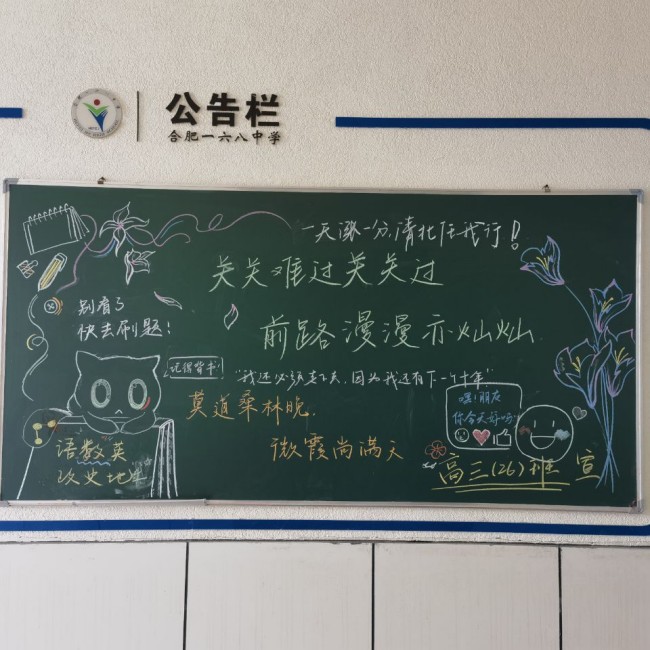 公告栏
合肥一六八中学
一天涨一分,清北任我行!
关关难过关关过
前路漫漫亦灿灿
别看了
快去刷题!
记得背书!
"我还必须走下去,因为我还有下一个十年"
莫道桑林晚.
微霞尚满天
嘿!朋友
你今天好吗
语数英
政史地
高三(26)班 宣